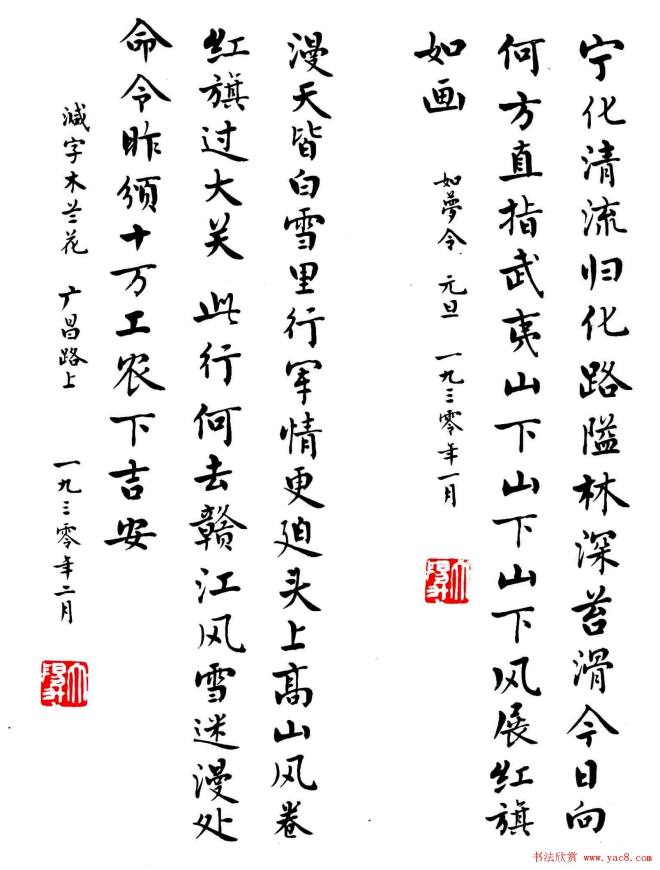 宁化清流归化路隘林深苔滑今日向
何方直指武夷山下山下山下风展红旗
如画
如夢令 元旦 一九三零年一月
漫天皆白雪里行军情更廹头上高山风卷
红旗过大关 此行何去赣江风雪迷漫处
命令昨颁十万工农下吉安
減字木兰花 广昌路上 一九三零年二月
书法欣赏 www.yac8.com